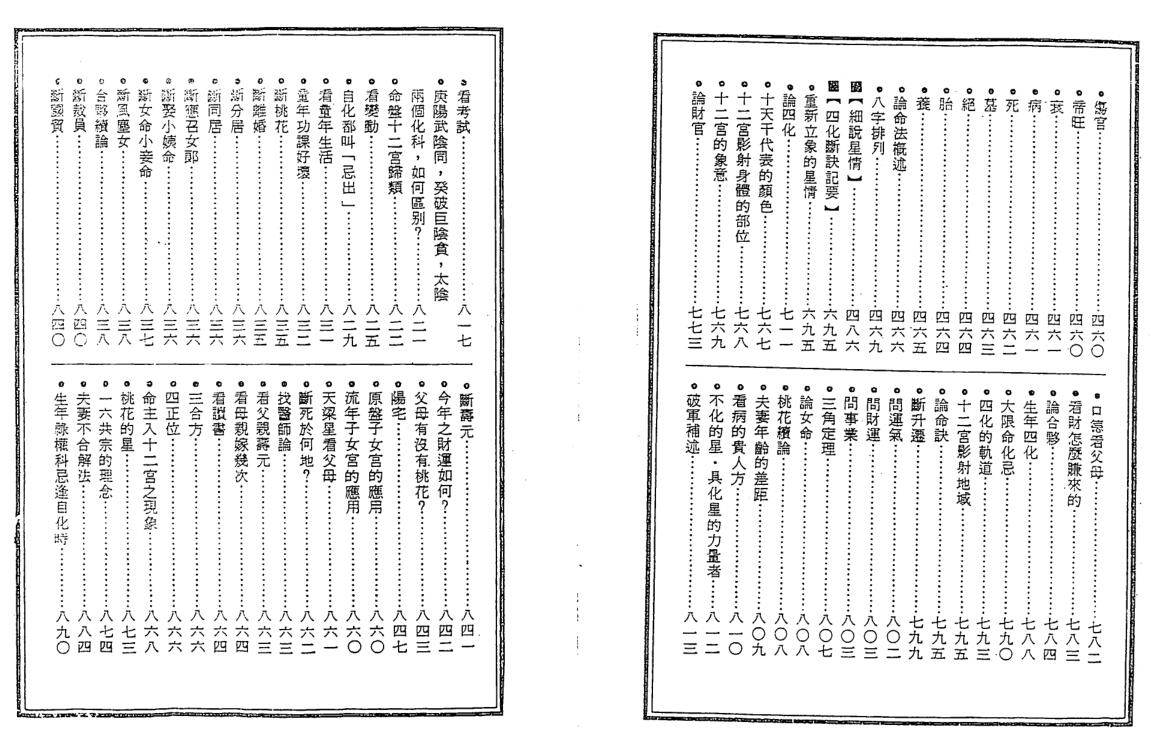 •傷官…四六〇
•帝旺…四六〇
•衰…四六一
•病…四六一
•死…四六二
•墓…四六三
•絕…四六四
•胎…四六四
•養…四六五
•論命法概述…四六六
•八字排列…四六九
【細說星情】…四八六
【四化斷訣記要】…六九五
•重新立象的星情…六九五
•論四化…七一一
•十天干代表的顏色…七六七
•十二宮影射身體的部位…七六八
•十二宮的象意…七六九
•論財官…七七三
•口德看父母…七八二
•看財怎麼賺來的…七八三
•論合夥…七八四
•生年四化…七八八
•大限命化忌…七九〇
•四化的軌道…七九三
•十二宮影射地域…七九五
•論命訣…七九五
•斷升遷…七九九
•問運氣…八〇二
•問財運…八〇三
•問事業…八〇三
•三角定理…八〇七
•論女命…八〇八
•桃花續論…八〇八
•夫妻年齡的差距…八〇九
•看病的貴人方…八一〇
•不化的星•具化星的力量者…八一二
•破軍補述…八一三
•看考試…八一七
•庚陽武陰同，癸破巨陰貪，太陰
兩個化科，如何區別？…八二一
•命盤十二宮歸類…八二二
•看變動…八二五
•自化都叫「忌出」…八二九
•看童年生活…八三一
•童年功課好壞…八三二
•斷桃花…八三五
•斷離婚…八三五
•斷分居…八三六
•斷同居…八三六
•斷應召女郎…八三六
•斷娶小姨命…八三六
•斷女命小妾命…八三七
•斷風塵女…八三八
•合夥續論…八三八
•斷教員…八四〇
•斷國貿…八四〇
•斷壽元…八四一
•今年之財運如何？…八四二
•父母有沒有桃花？…八四三
•陽宅…八四七
•原盤子女宮的應用…八六〇
•流年子女宮的應用…八六〇
•天梁星看父母…八六一
•斷死於何地？…八六二
•找醫師論…八六三
•看父親壽元…八六三
•看母親嫁幾次…八六四
•看讀書…八六四
•三合方…八六六
•四正位…八六六
•命主入十二宮之現象…八六八
•桃花的星…八七三
•一六共宗的理念…八七四
•夫妻不合解法…八八四
•生年祿權科忌逢自化時…八九〇